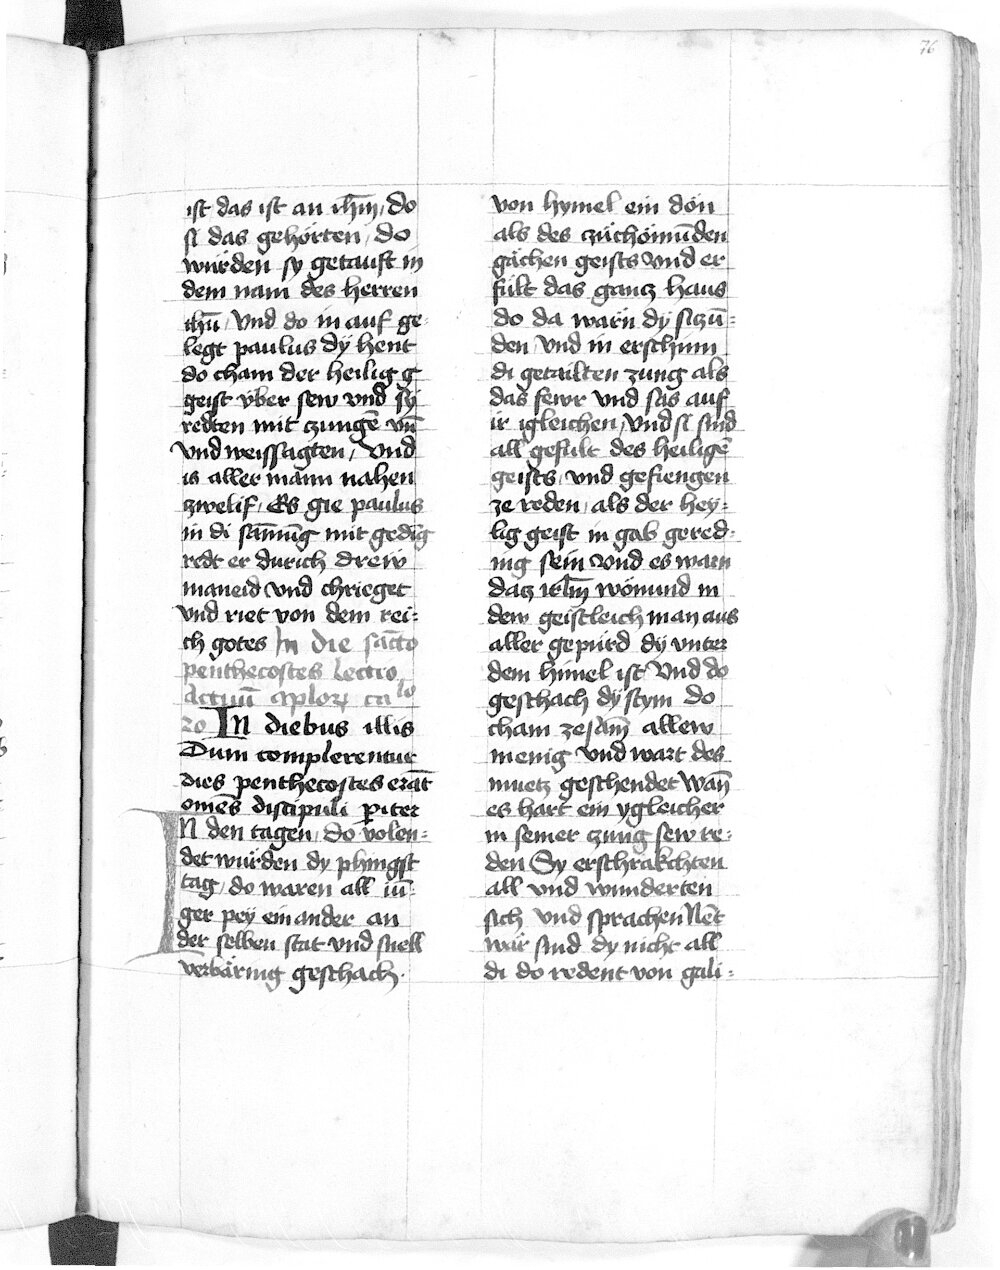 76
ist das ist an ihm̄, do
si das gehórten, do
wurden sy getauft in
dem nam des herren
ihū, vnd do in auf ge-
legt paulus dÿ hent
do cham der heilig g
geist v̈ber sew vnd sÿ
redten mit czungē vn̄
vnd weissagten, vnd
is aller mann nahen
zwelif, Es gie paulus
in di sam̄ūg mit gedūg
redt er durich drew
maneid vnd chrieget
vnd riet von dem rei-
ch gotes In die sācto
penthecostes lectio
Actuū aplorꝫ ca lo
20 IN diebus illis
Dum complerentur
dies penthecostes erāt
om̄es discipuli ꝑiter
IN den tagen, do volen-
det wurden dy phingst
tag, do waren all iū-
ger pey ein ander an
der selben stat vnd snell
verbäring geschach.
von hymel ein dón
als des zuchömūden
gáchen geists vnd er
fult das gancz haus
do da warn dy siczū-
den, vnd in erschinn
di getailten zung als
das fewr vnd sas auf
ir igleichen, vnd si sind
all gefult des heiligē
geists, vnd gefiengen
ze reden, als der hey-
lig geist in gab gered-
nig sein vnd es warn
dacz irłm wönund in
dew geistleich man aus
aller gepurd dÿ vnter
dem himel ist vnd do
geschach dy stym do
cham zesam̄ allew
menig vnd wart des
muetz geschendet wan̄
es hart ein ygleicher
in seiner zung sew re-
den Sy erschrakchten
all vnd wunderten
sich vnd sprachen Nēt
war sind dy nicht all
di do redent von gali-